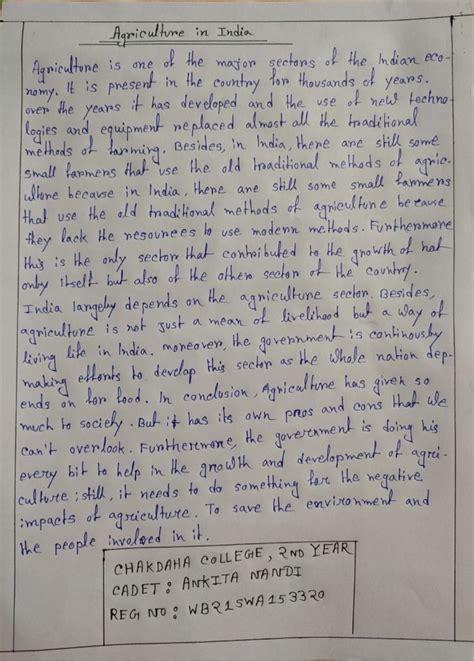 Agriculture in India
Agriculture is one of the major sectors of the Indian eco-
nomy. It is present in the country for thousands of years.
over the years it has developed and the use of new techno-
logies and equipment replaced almost all the traditional
methods of farming. Besides, in India, there are still some
small farmers that use the old traditional methods of agric-
ulture because in India, there are still some small farmers
that use the old traditional methods of agriculture because
they lack the resources to use modern methods. Furthermore
this is the only sector that contributed to the growth of not
only itself but also of the other sector of the country.
India largely depends on the agriculture sector. Besides,
agriculture is not just a mean of livelihood but a way of
living life in India. moreover, the government is continously
making efforts to develop this sector as the whole nation dep-
ends on for food. In conclusion, Agriculture has given so
much to society. But it has its own pros and cons that we
can't overlook. Furthermore, the government is doing his
every bit to help in the growth and development of agri-
culture; still, it needs to do something for the negative
impacts of agriculture. To save the environment and
the people involved in it.
CHAKDAHA COLLEGE, 2ND YEAR
CADET: ANKITA NANDI
REG NO: WB21SWA153320